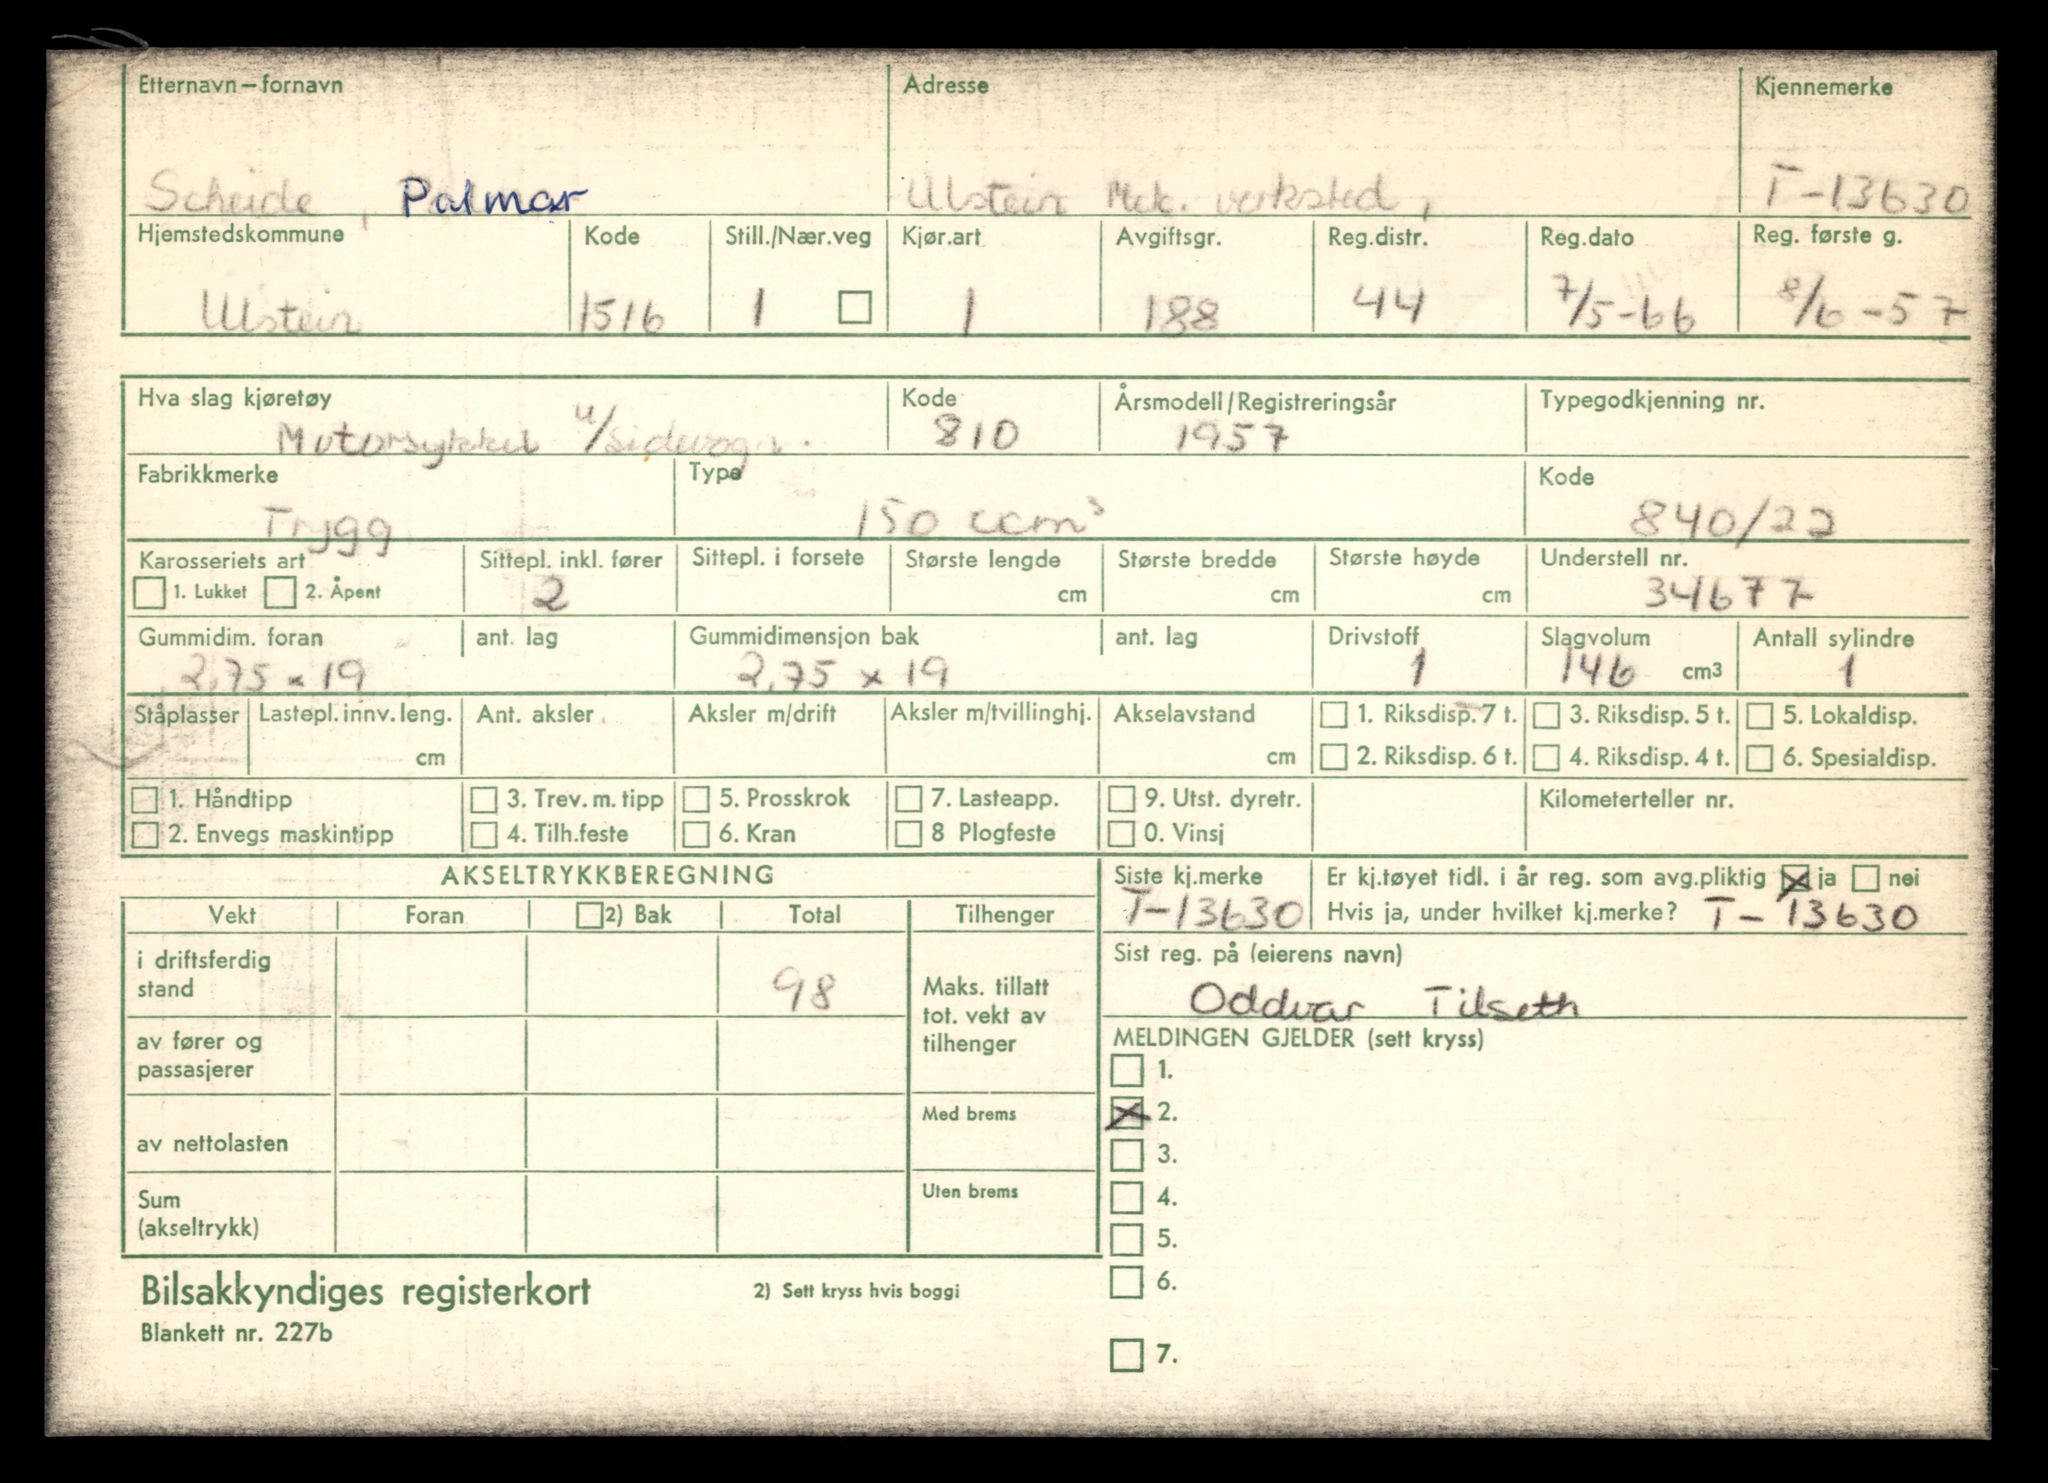 Etternavn – fornavn Adresse Kjennemerke
Scheide, Palmar Ulstein Mek. verksted, T-13630
Hjemstedskommune Kode Still./Nær.veg Kjør.art Avgiftsgr. Reg.distr. Reg.dato Reg. første g.
Ulstein 1516 1 1 188 44 7/5-66 8/6-57
Hva slag kjøretøy Kode Årsmodell/Registreringsår Typegodkjenning nr.
Motorsykkel u/sidevogn. 810 1957
Fabrikkmerke Type Kode
Trygg 150 ccm³ 840/22
Karosseriets art Sittepl. inkl. fører Sittepl. i forsete Største lengde Største bredde Største høyde Understell nr.
1. Lukket 2. Åpent 2 cm cm cm 34677
Gummidim. foran ant. lag Gummidimensjon bak ant. lag Drivstoff Slagvolum Antall sylindre
2,75 x 19 2,75 x 19 1 146 cm3 1
Ståplasser Lastepl. innv. leng. Ant. aksler Aksler m/drift Aksler m/tvillinghj. Akselavstand 1. Riksdisp. 7 t. 3. Riksdisp. 5 t. 5. Lokaldisp.
cm cm 2. Riksdisp. 6 t. 4. Riksdisp. 4 t. 6. Spesialdisp.
1. Håndtipp 3. Trev. m. tipp 5. Prosskrok 7. Lasteapp. 9. Utst. dyretr. Kilometerteller nr.
2. Envegs maskintipp 4. Tilh.feste 6. Kran 8 Plogfeste 0. Vinsj
AKSELTRYKKBEREGNING Siste kj.merke Er kj.tøyet tidl. i år reg. som avg.pliktig ja nei
T-13630 Hvis ja, under hvilket kj.merke? T-13630
Vekt Foran 2) Bak Total Tilhenger
Sist reg. på (eierens navn)
Oddvar Tilseth
i driftsferdig
stand 98
Maks. tillatt
tot. vekt av
tilhenger
av fører og
passasjerer
Med brems
av nettolasten
Uten brems
Sum
(akseltrykk)
MELDINGEN GJELDER (sett kryss)
1.
2.
3.
4.
5.
6.
7.
Bilsakkyndiges registerkort 2) Sett kryss hvis boggi
Blankett nr. 227b